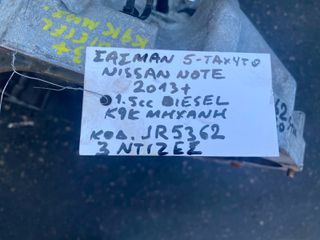 ΣΑΣΜΑΝ 5-ΤΑΧΥΤΟ
NISSAN NOTE
2013+
1.5cc DIESEL
K9K ΜΗΧΑΝΗ
ΚΩΔ. JR5362
3 ΝΤΙΖΕΣ